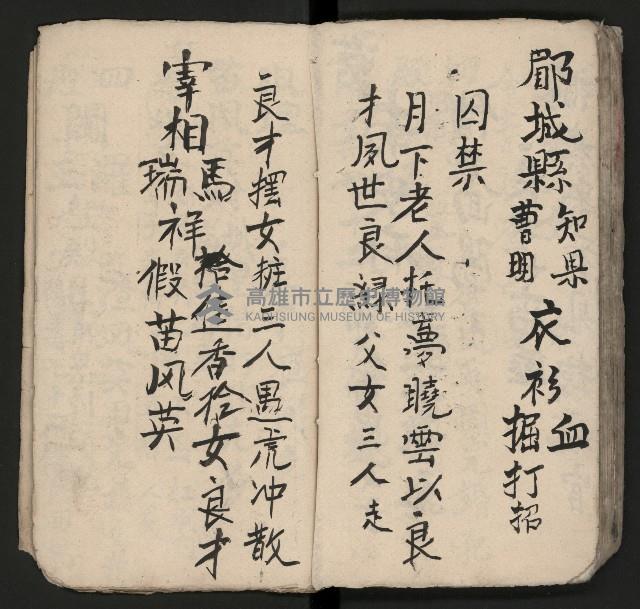 郿城縣 知果 曹明 衣衫血 掘打招
囚禁
月下老人托夢曉雲以良
才夙世良緣父女三人走
良才擺女粧二人遇虎冲散
宰相馬 拾 香拾女良才
瑞祥假苗风英
高雄市立歷史博物館
KAOHSIUNG MUSEUM OF HISTORY